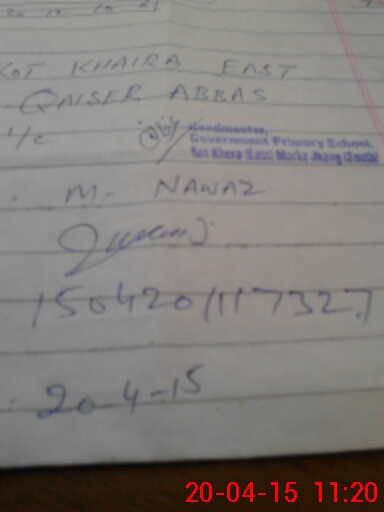 KOT KHAIRA EAST
QAISER ABBAS
I/C
Headmaster,
Government Primary School,
Kot Khera (East) Markz Jhang (South)
M. NAWAZ
150420111732.7
20-4-15
20-04-15 11:20